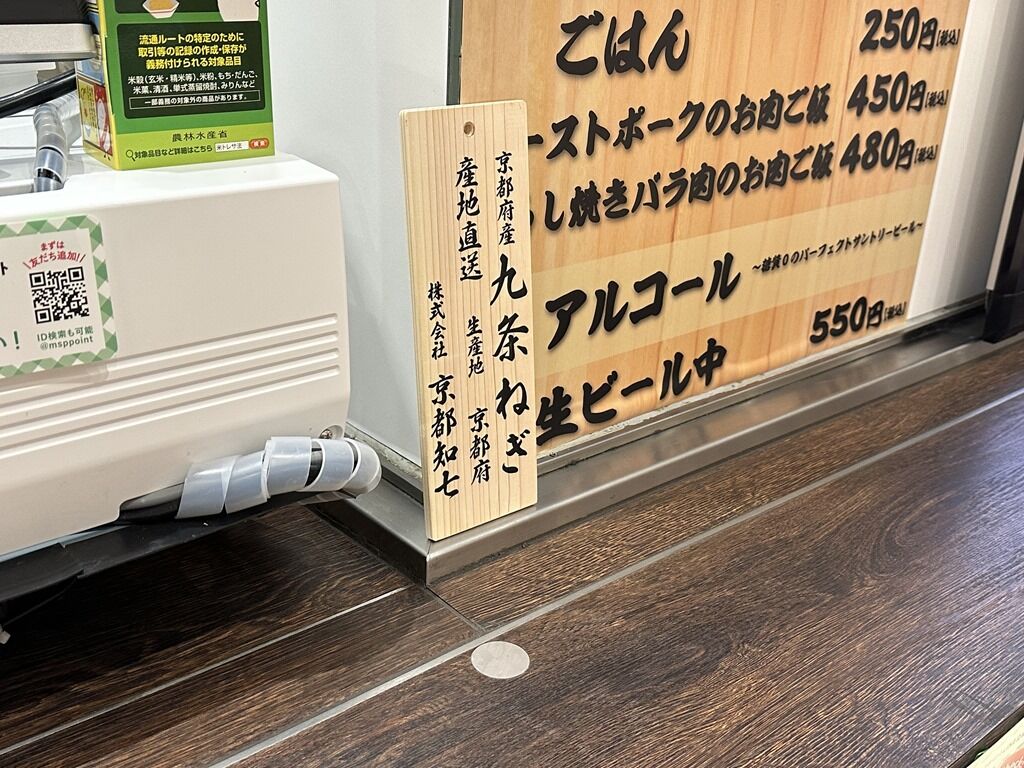 流通ルートの特定のために
取引等の記録の作成・保存が
義務付けられる対象品目
米穀(玄米・精米等)、米粉、もち・だんご、
米菓、清酒、単式蒸留焼酎、みりんなど
一部義務の対象外の商品があります。
農林水産省
対象品目など詳細はこちら 米トレサ法 検索
まずは
友だち追加!
ID検索も可能
@msppoint
い!
ト
京都府産 九条ねぎ
産地直送 生産地 京都府
株式会社 京都知七
ごはん 250円[税込]
ーストポークのお肉ご飯 450円[税込]
し焼きバラ肉のお肉ご飯 480円[税込]
アルコール ~糖質0のパーフェクトサントリービール~
生ビール中 550円[税込]